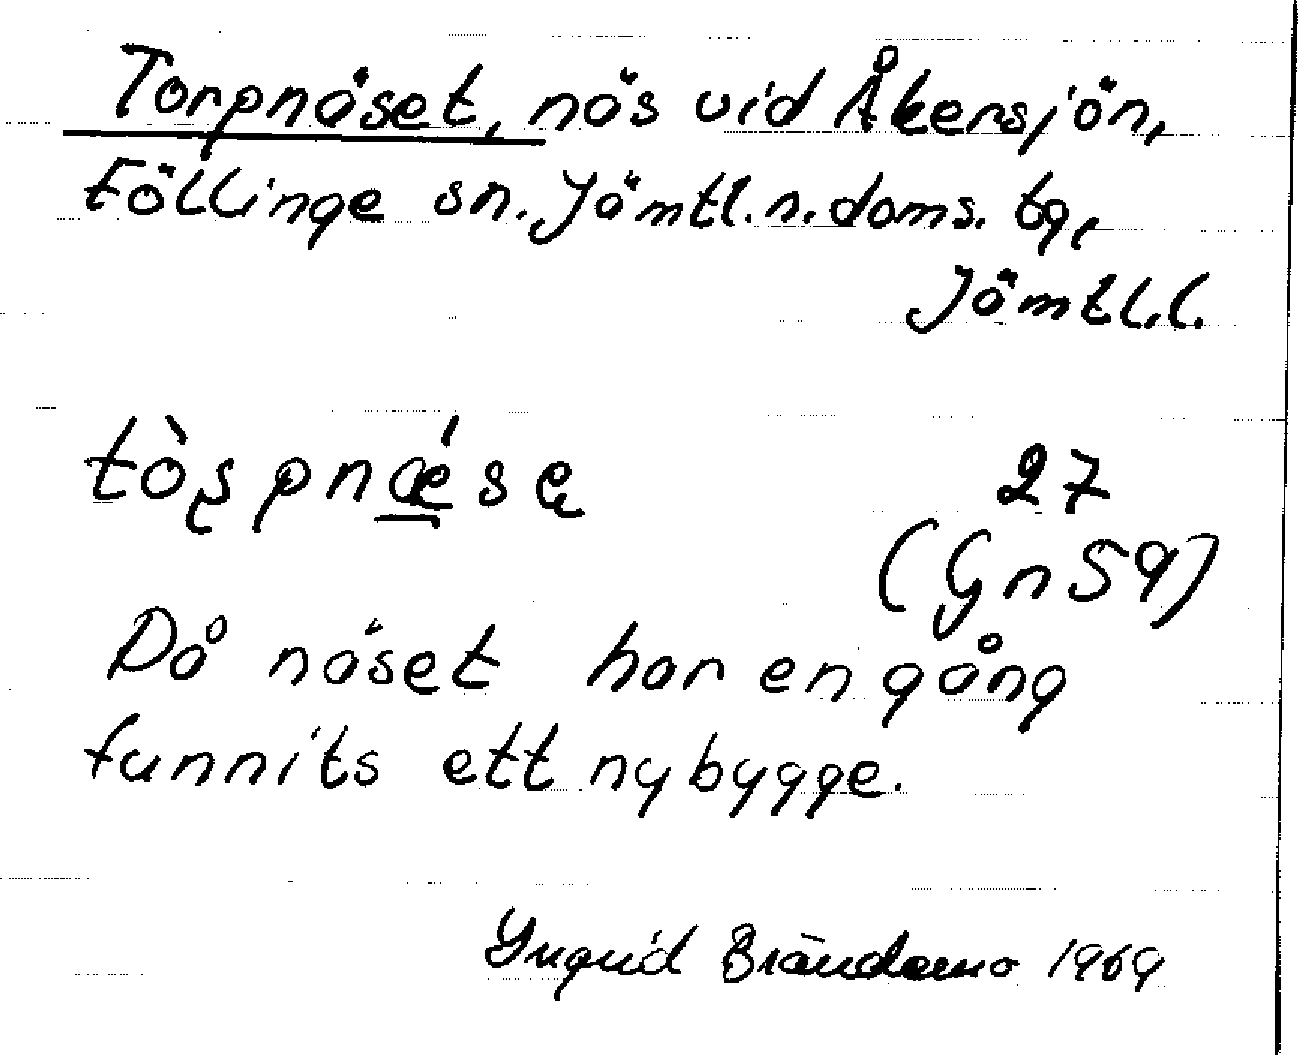 Torpnäset, näs vid Åkersjön,
Föllinge sn. Jämtl.n.doms. tg,
Jämtl.l.
tòʂpnǽsę 27
(Gn 59)
På näset har en gång
funnits ett nybygge.
Yngvid Brändamo 1969